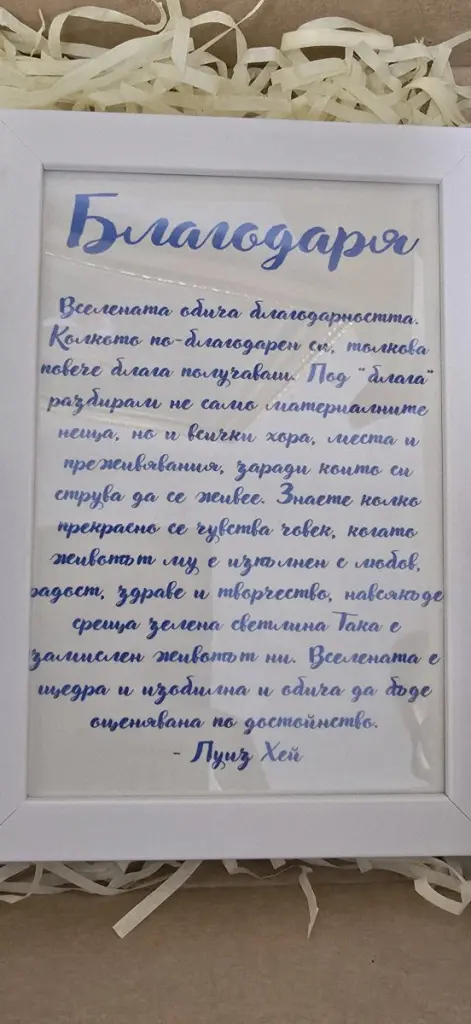 Благодаря
Вселената обича благодарността.
Колкото по-благодарен си, толкова
повече блага получаваш. Под "блага"
разбирам не само материалните
неща, но и всички хора, места и
преживявания, заради които си
струва да се живее. Знаете колко
прекрасно се чувства човек, когато
животът му е изпълнен с любов,
радост, здраве и творчество, навсякъде
среща зелена светлина Така е
замислен животът ни. Вселената е
щедра и изобилна и обича да бъде
оценявана по достойнство.
- Луиз Хей